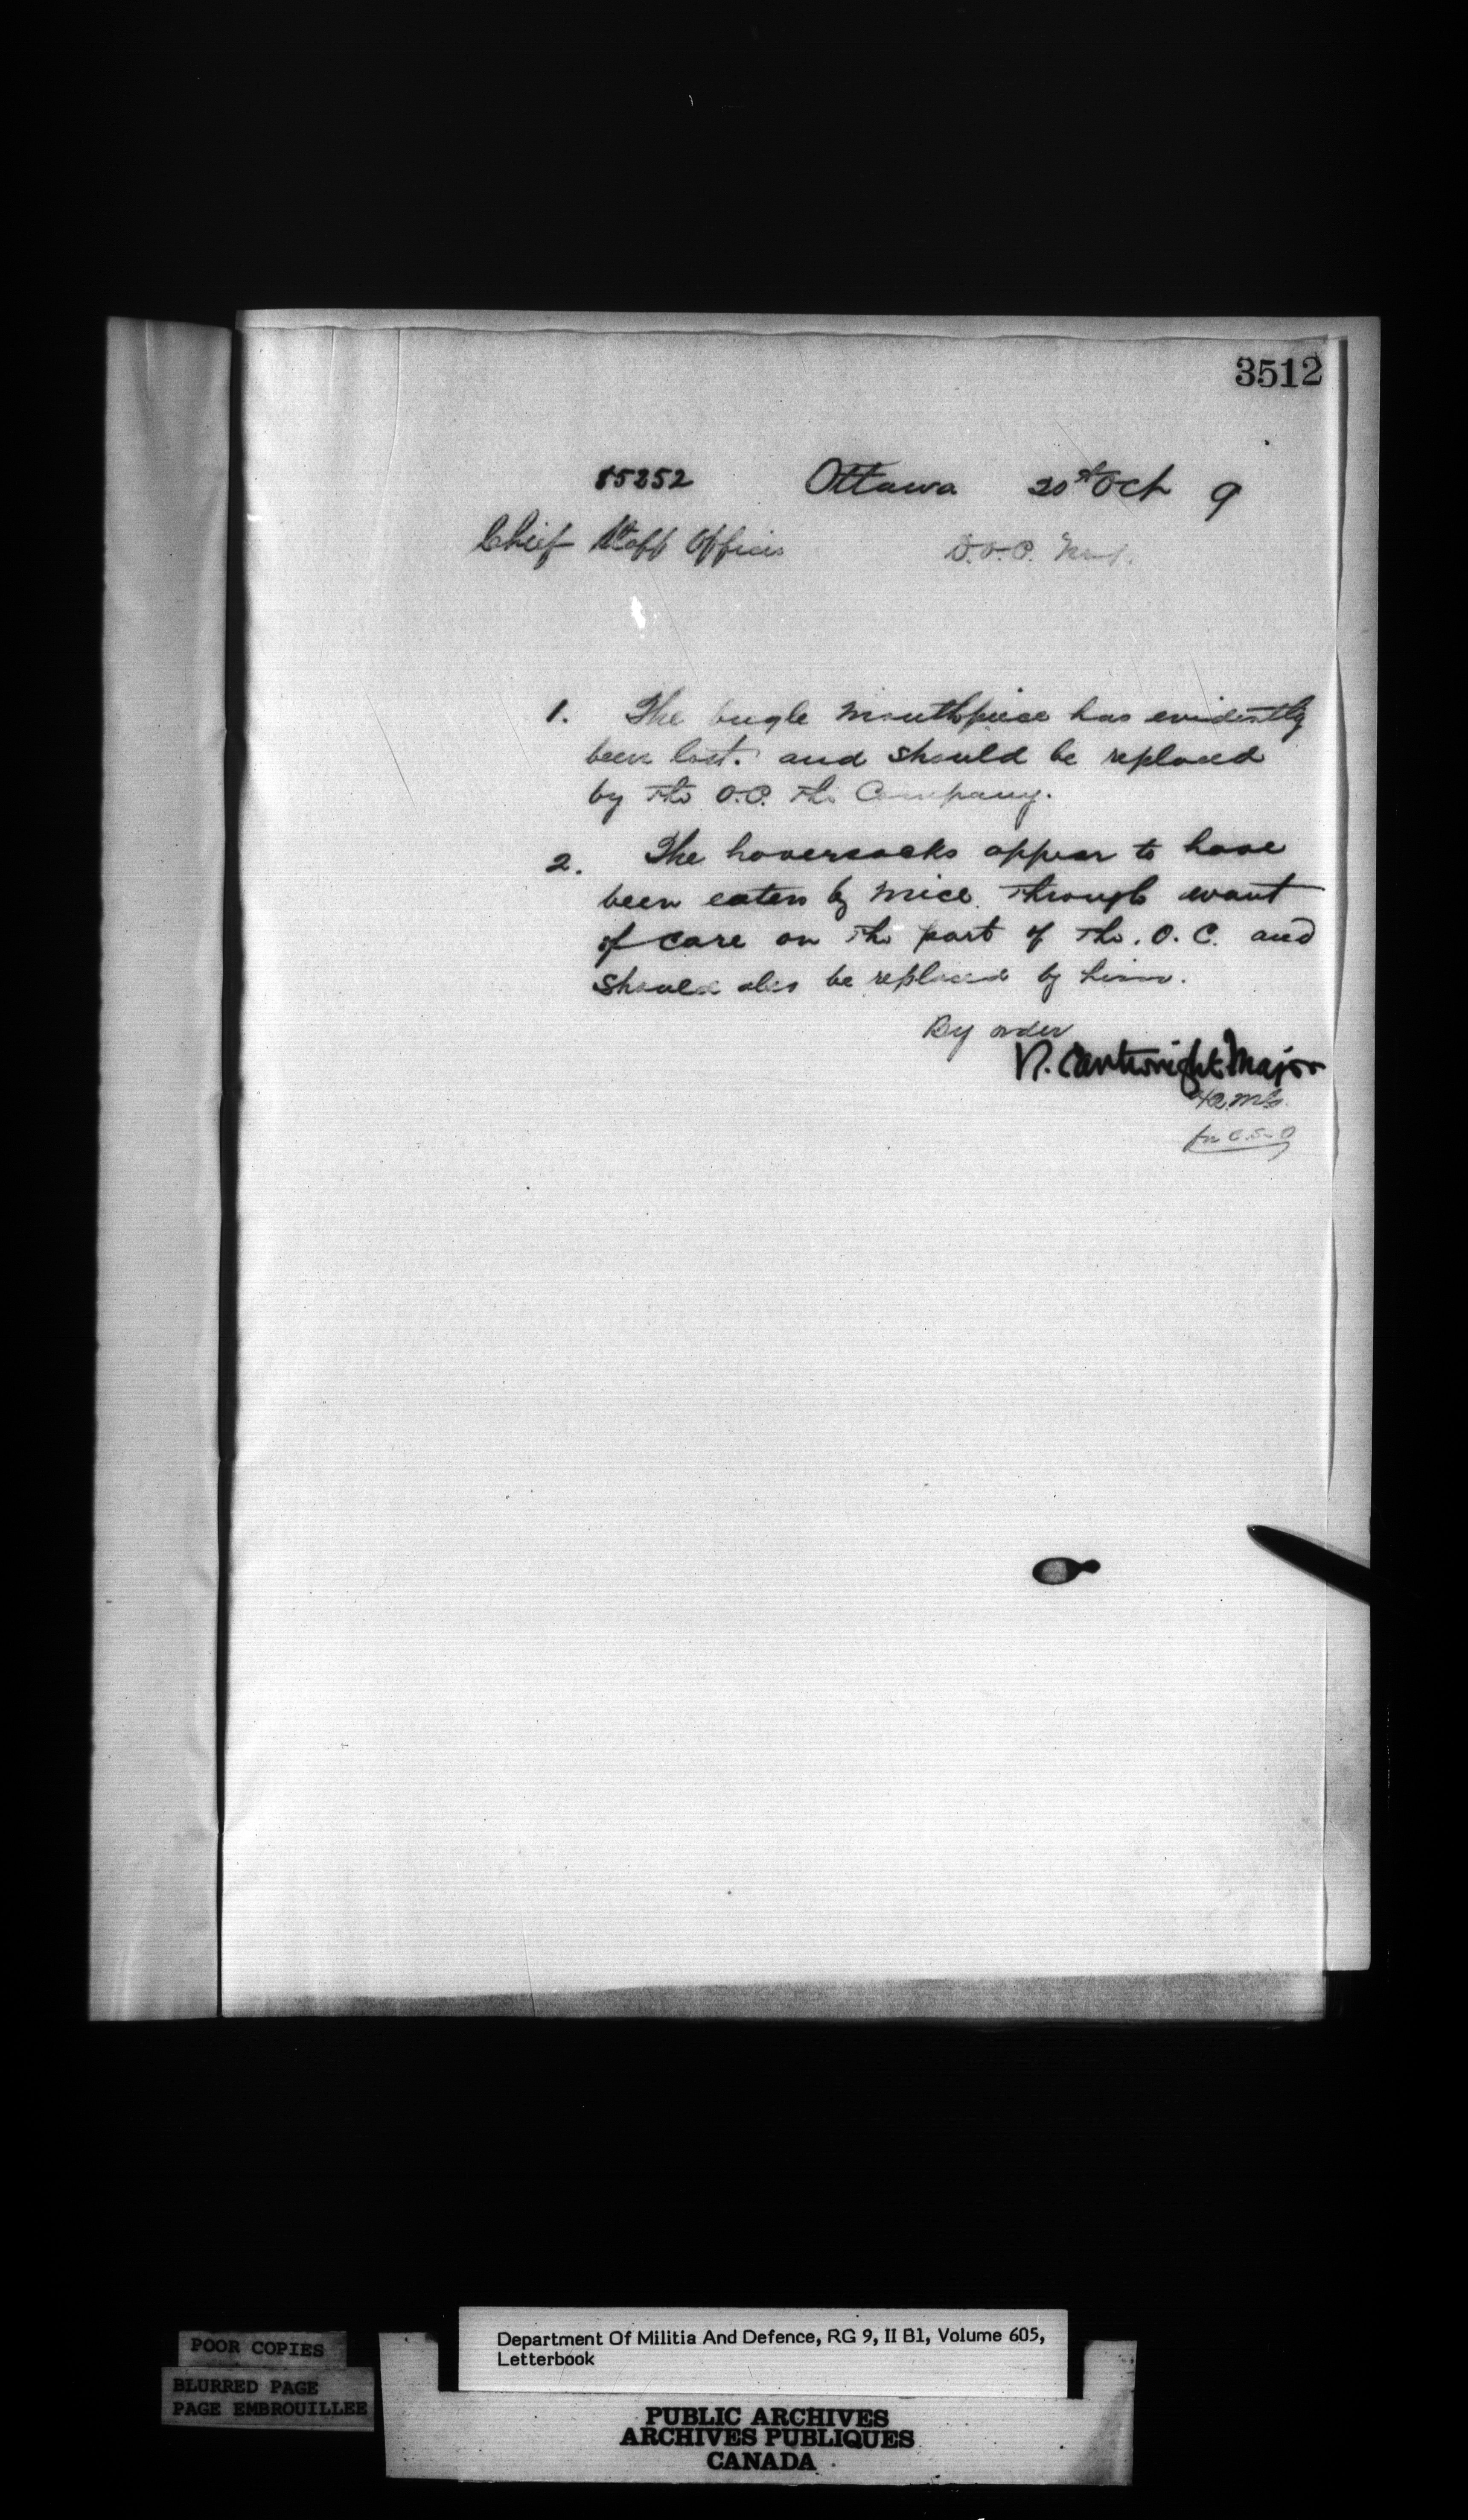 3512
85252 Ottawa 20th Oct 9
Chief Staff Officer D.O.C.
1. The bugle mouthpiece has evidently
been lost. and should be replaced
by the O.C. the Company.
2. The haversacks appear to have
been eaten by mice through want
of care on the part of the O.C. and
should also be replaced by him.
By order
R. Cartwright Major
for C.S.O
POOR COPIES
BLURRED PAGE
PAGE EMBROUILLEE
Department Of Militia And Defence, RG 9, II B1, Volume 605,
Letterbook
PUBLIC ARCHIVES
ARCHIVES PUBLIQUES
CANADA